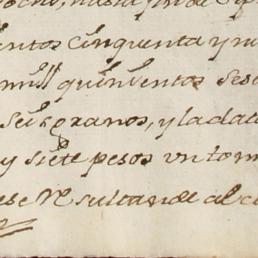 ocho, hasta fin de
entos cinquenta y nu
mill quinientos ses
seis granos, y la data
y siete pesos un tom
se Resultande al c